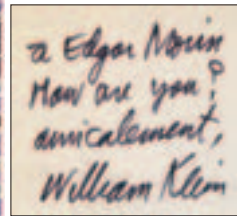 a Edgar Morin
How are you?
amicalement,
William Klein